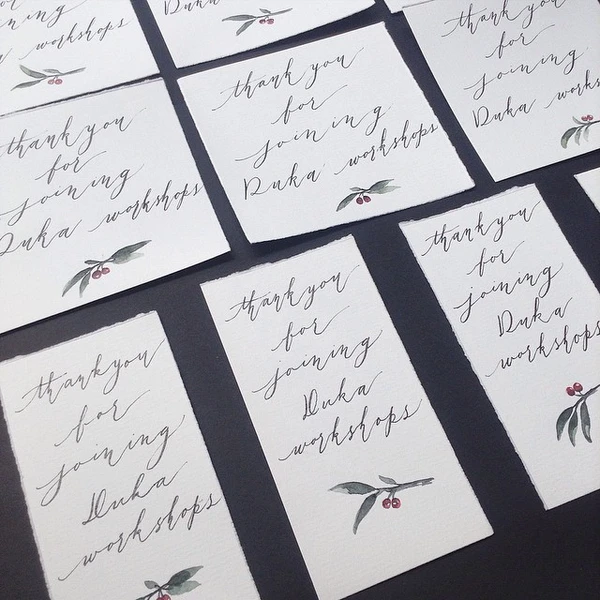 joining
workshops
Duka
thank you
for
joining
Duka works
thank you
for
joining
Duka workshops
thank you
for
joining
Duka workshops
thank you
for
joining
Duka
workshops
thank you
for
joining
Duka
workshops
thank you
for
joining
Duka
workshops